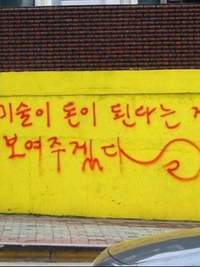 미술이 돈이 된다는
보여주겠다